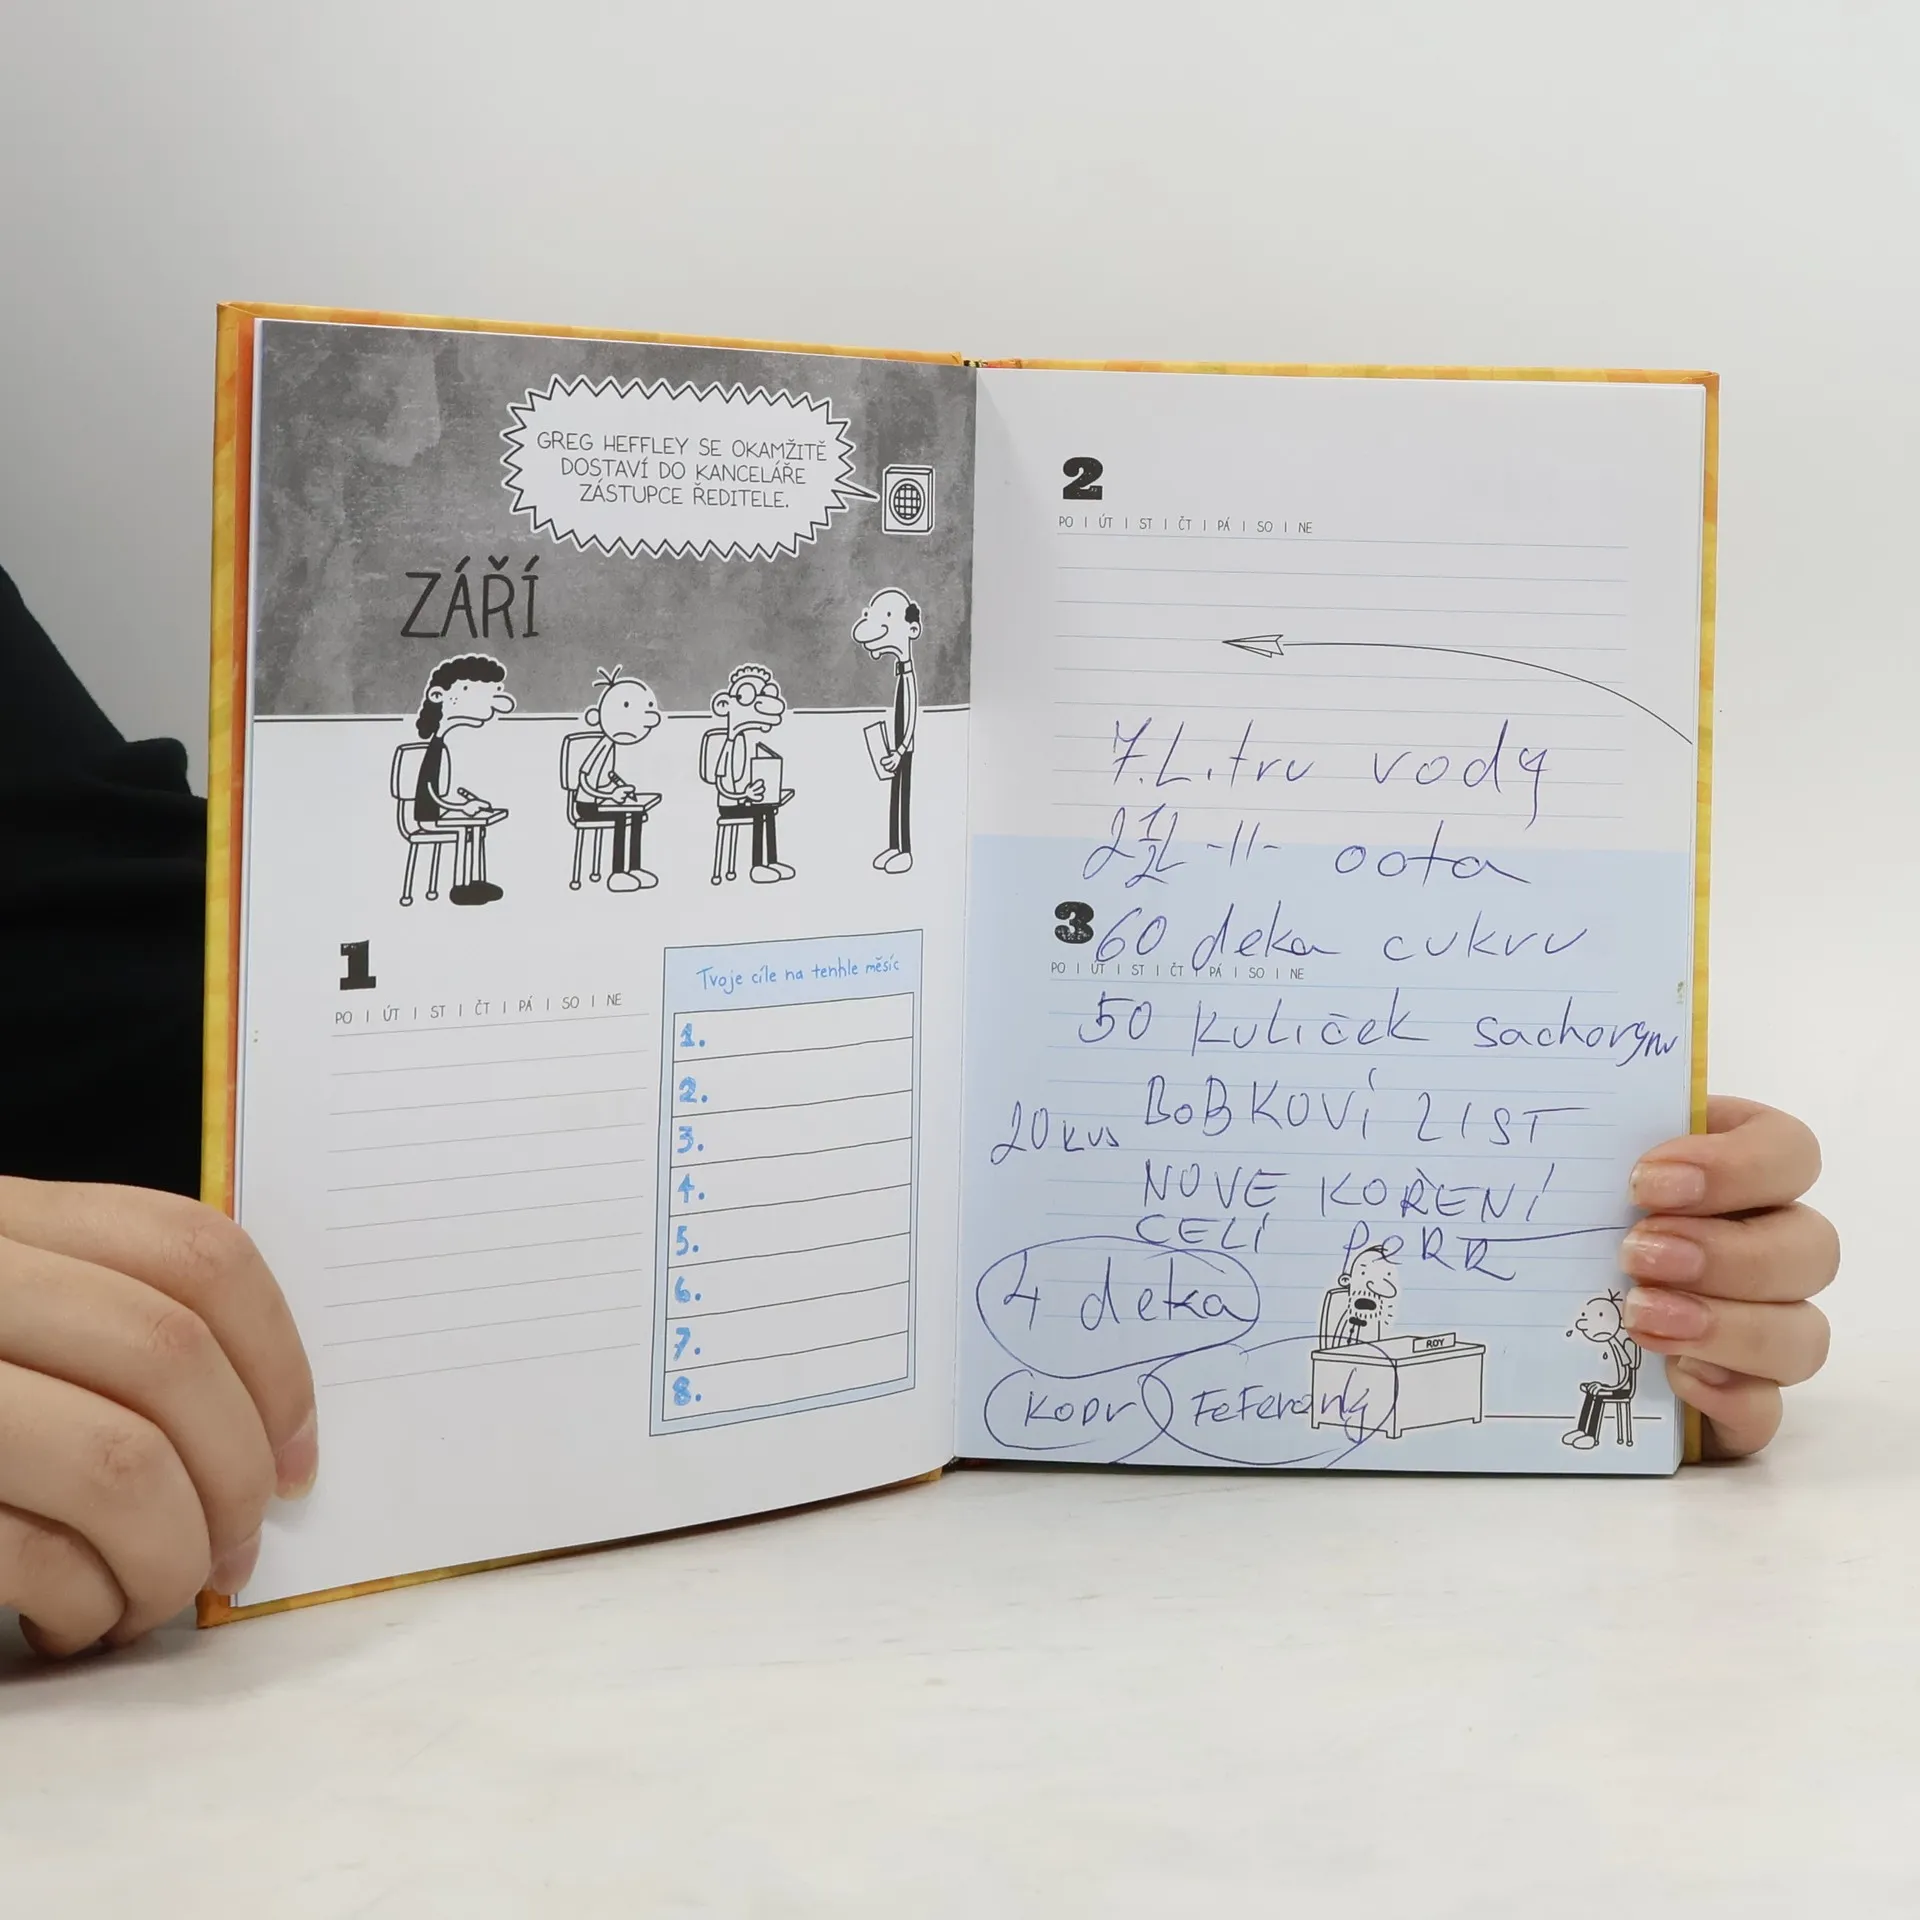 GREG HEFFLEY SE OKAMŽITĚ
DOSTAVÍ DO KANCELÁŘE
ZÁSTUPCE ŘEDITELE.
ZÁŘÍ
1
PO | ÚT | ST | ČT | PÁ | SO | NE
Tvoje cíle na tenhle měsíc
1.
2.
3.
4.
5.
6.
7.
8.
2
PO | ÚT | ST | ČT | PÁ | SO | NE
7.Litru vody
2 1/2 L -11- octa
3
60 deka cukru
PO | ÚT | ST | ČT | PÁ | SO | NE
50 kuliček
20 kus BOBKOVÍ LIST
NOVE KOŘENÍ
CELÍ
4 deka
ROY
KOPR FEFERONKY